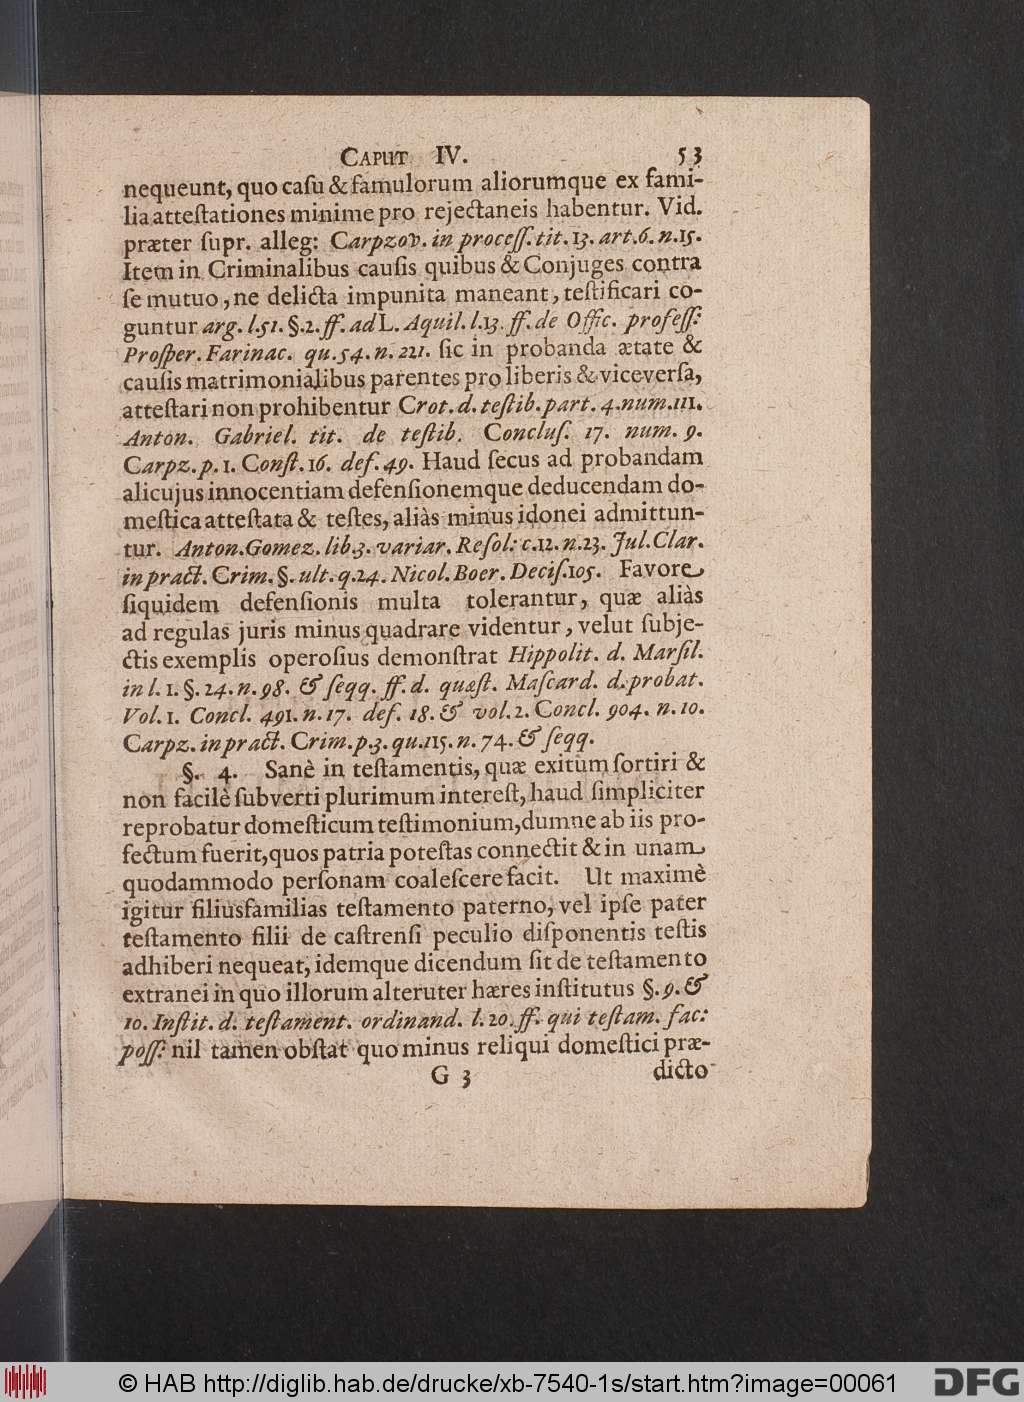 CAPUT IV. 53
nequeunt, quo caſu & famulorum aliorumque ex fami-
lia atteſtationes minime pro rejectaneis habentur. Vid.
præter ſupr. alleg: Carpzov. in proceſſ. tit. 13. art. 6. n. 15.
Item in Criminalibus cauſis quibus & Conjuges contra
ſe mutuo, ne delicta impunita maneant, teſtificari co-
guntur arg. l. 51. §. 2. ff. ad L. Aquil. l. 13. ff. de Offic. profeſſ:
Proſper. Farinac. qu. 54. n. 221. ſic in probanda ætate &
cauſis matrimonialibus parentes pro liberis & viceverſa,
atteſtari non prohibentur Crot. d. teſtib. part. 4. num. 111.
Anton. Gabriel. tit. de teſtib. Concluſ. 17. num. 9.
Carpz. p. 1. Conſt. 16. def. 49. Haud ſecus ad probandam
alicujus innocentiam defenſionemque deducendam do-
meſtica atteſtata & teſtes, aliàs minus idonei admittun-
tur. Anton. Gomez. lib. 3. variar. Reſol: c. 12. n. 23. Jul. Clar.
in pract. Crim. §. ult. q. 24. Nicol. Boer. Deciſ. 105. Favore
ſiquidem defenſionis multa tolerantur, quæ aliàs
ad regulas juris minus quadrare videntur, velut ſubje-
ctis exemplis operoſius demonſtrat Hippolit. d. Marſil.
in l. 1. §. 24. n. 98. & ſeqq. ff. d. quæſt. Maſcard. d. probat.
Vol. 1. Concl. 491. n. 17. def. 18. & vol. 2. Concl. 904. n. 10.
Carpz. in pract. Crim. p. 3. qu. 115. n. 74. & ſeqq.
§. 4. Sanè in teſtamentis, quæ exitum ſortiri &
non facilè ſubverti plurimum intereſt, haud ſimpliciter
reprobatur domeſticum teſtimonium, dum ne ab iis pro-
fectum fuerit, quos patria poteſtas connectit & in unam
quodammodo perſonam coaleſcere facit. Ut maximè
igitur filiusfamilias teſtamento paterno, vel ipſe pater
teſtamento filii de caſtrenſi peculio diſponentis teſtis
adhiberi nequeat, idemque dicendum ſit de teſtamento
extranei in quo illorum alteruter hæres inſtitutus §. 9. &
10. Inſtit. d. teſtament. ordinand. l. 20. ff. qui teſtam. fac:
poſſ: nil tamen obſtat quo minus reliqui domeſtici præ-
G 3 dicto
© HAB http://diglib.hab.de/drucke/xb-7540-1s/start.htm?image=00061
DFG